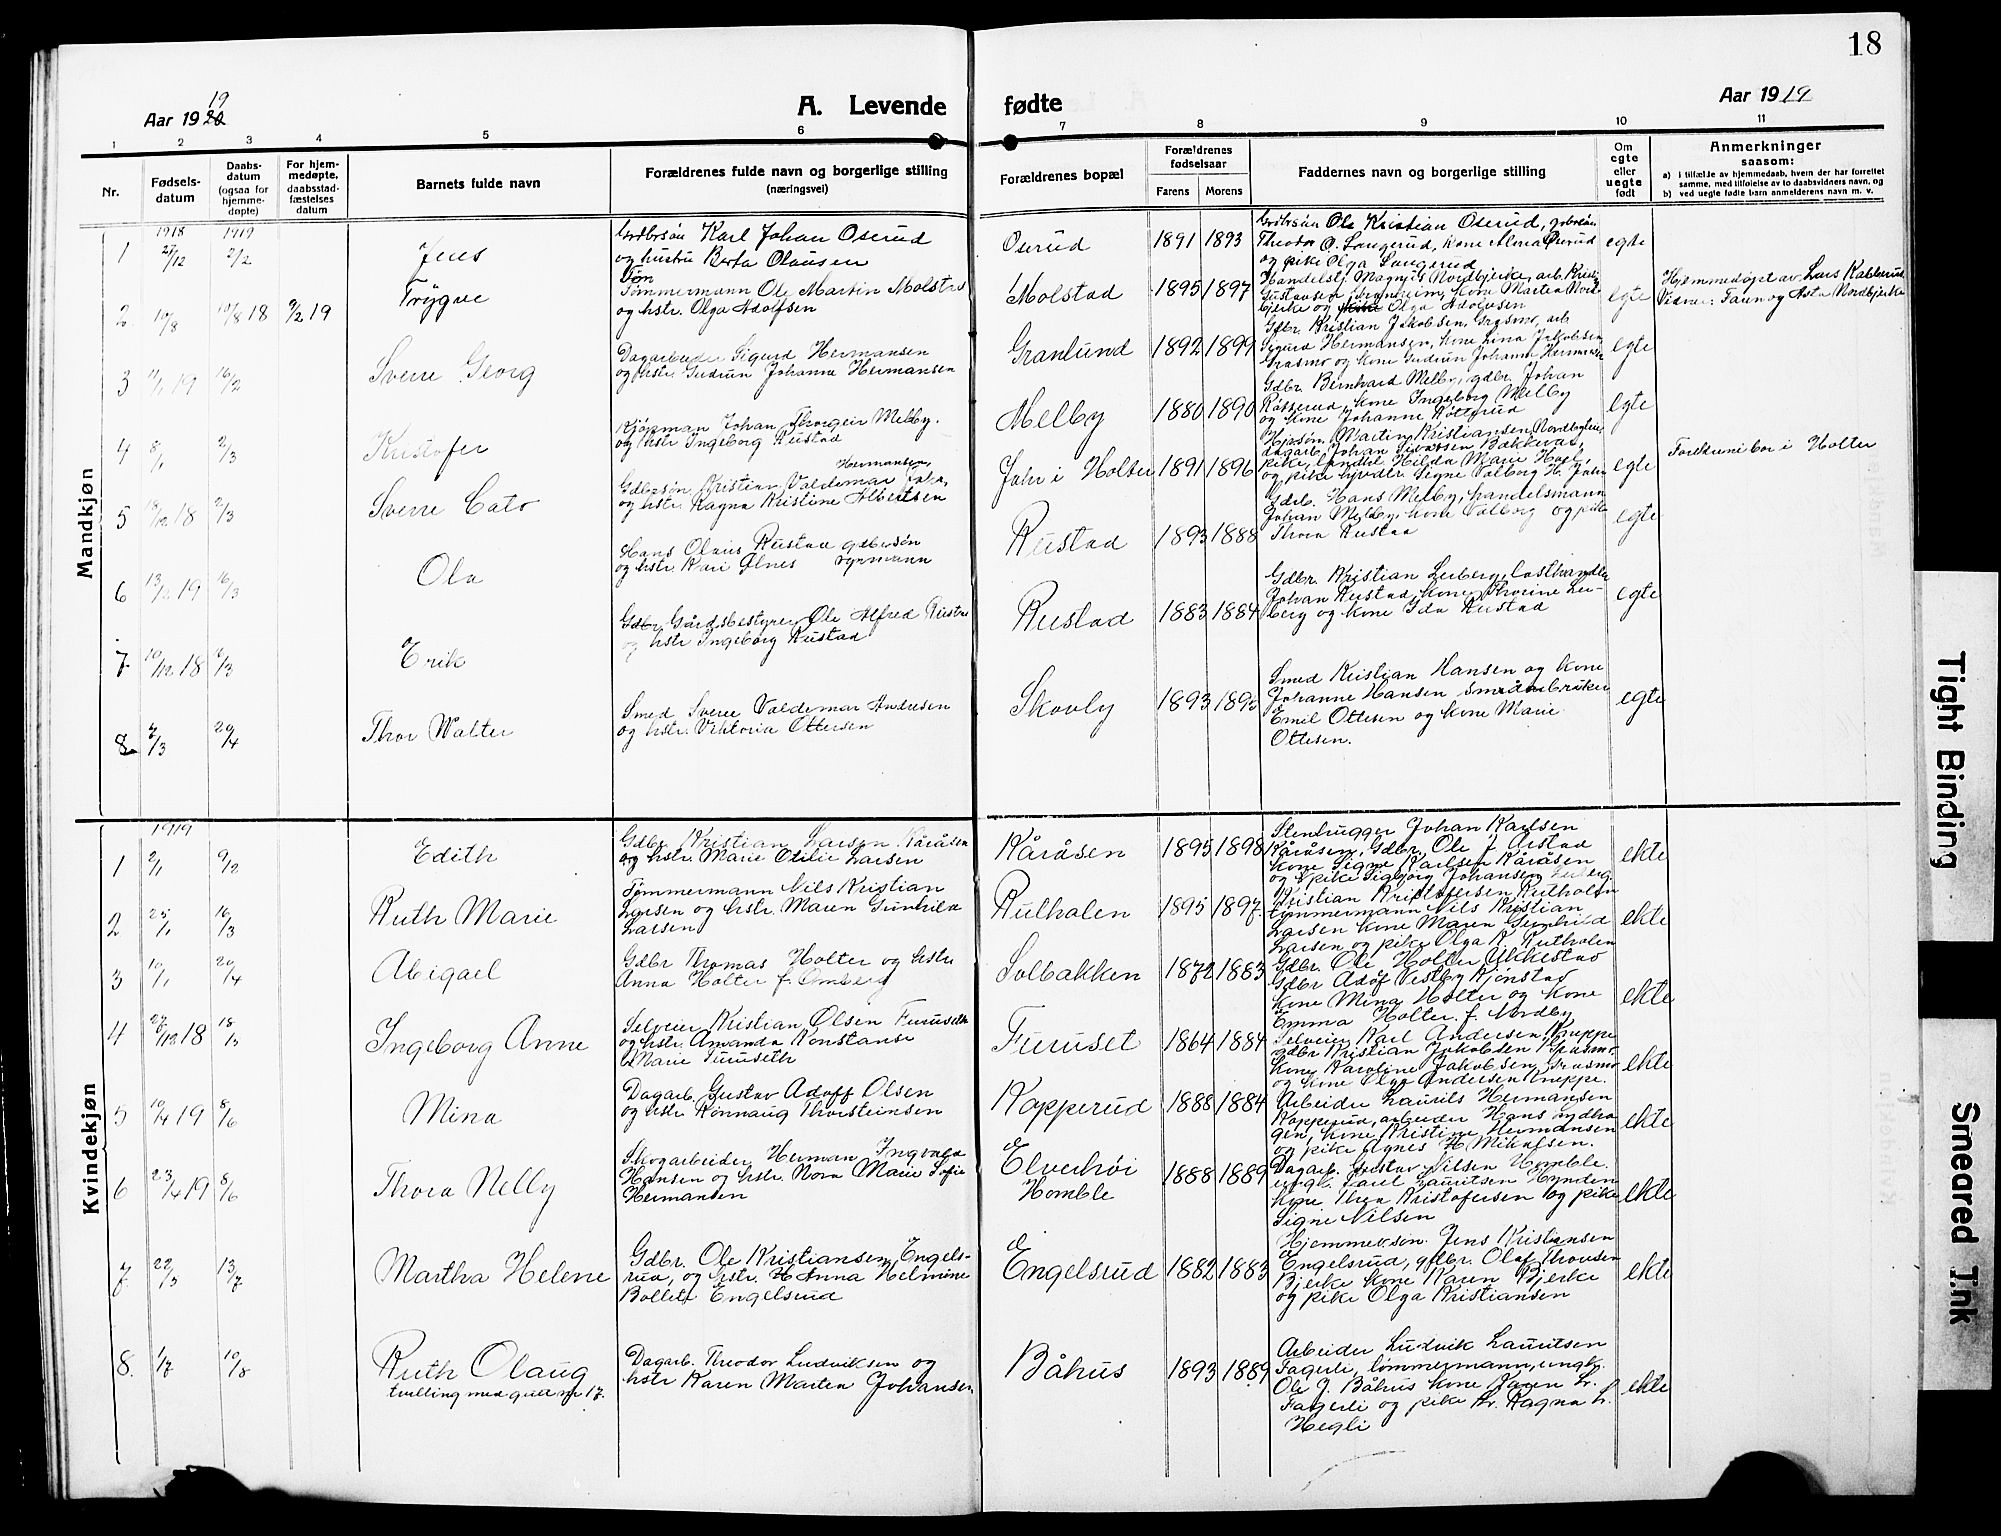 18
Aar 1919
A. Levende fødte
Aar 1919
1 2 3 4 5 6 7 8 9 10 11
Nr.
Fødsels-
datum
Daabs-
datum
(ogsaa for
hjemme-
døpte)
For hjem-
medøpte,
daabsstad-
fæstelses
datum
Barnets fulde navn
Forældrenes fulde navn og borgerlige stilling
(næringsvei)
Forældrenes bopæl
Forældrenes
fødselsaar
Farens Morens
Faddernes navn og borgerlige stilling
Om
egte
eller
uegte
født
Anmerkninger
saasom:
a) i tilfælde av hjemmedaab, hvem der har forrettet
samme, med tilføielse av to daabsvidners navn, og
b) ved uegte fødte barn anmelderens navn m. v.
Mandkjøn
1918 1919
1 27/12 2/2 Jens
Gdbrsøn Karl Johan Oserud
og hustru Berta Olausen
Oserud 1891 1893
Gdbrsøn Ole Kristian Oserud, gdbrsøn
Theodor O. Langerud, kone Alma Oserud
og pike Olga Langerud
egte
2 10/8 10/8 18 9/2 19 Trygve
Tømmermann Ole Martin Molstad
og hstr. Olga Adolfsen
Molstad 1895 1897
Handelsf. Magnus Nordbjerke, arb. Kristi
Gustavsen, kone Martea Nord-
bjerke og Olga Adolfsen
egte
Hjemmedøpt av Lars Kalstad
Vidner: Faren og Asta Nordbjerke
3 11/1 19 16/2 Sverre Georg
Dagarbeider Sigurd Hermansen
og hstr. Gudrun Johanne Hermansen
Granlund 1892 1899
Gdbr. Kristian Jakobsen Grasmo, arb
Sigurd Hermansen, kone Lina Jakobsen
Grasmo og kone Gudrun Johanne Hermansen
egte
4 8/1 2/3 Kristofer
Kjøpman Johan Thorgeir Melby.
og hstr Ingeborg Rustad
Melby 1880 1890
Gdbr. Bernhard Melby, gdbr. Johan
kone Ingeborg Melby
og kone Johanne
egte
5 18/12 18 2/3 Sverre Cato
Gdbrsøn Kristian Valdemar Hermansen,
og hstr. Ragna Kristine Albertsen
Jahr i Holter 1891 1896
Martin Kristiansen Nordbyhagen,
dagarb. Johan Sivertsen Bakkevar,
pike, Hilda Marie Hoel,
og pike Signe Valborg H. Jahr
egte
Foreldrene bor i Holter
6 13/1 19 16/3 Ola
Hans Olaus Rustad gdbrsøn
og hstr. Kari Alnes
Rustad 1893 1888
Gdrb. Hans Melby, handelsmann
Johan Melby, kone Valborg og pike
Thora Rustad
egte
7 10/12 18 16/3 Erik
Gårdsbestyrer Ole Alfred Rustad
og hstr Ingeborg Rustad
Rustad 1883 1884
Gdbr Kristian Leeberg, lasthandler
Johan Rustad, kone Thorine Lee-
berg og kone Ida Rustad
egte
8 2/3 20/4 Thor Walter
Smed Sverre Valdemar Andresen
og hstr. Viktoria Ottersen
Skovly 1893
Smed Kristian Hansen og kone
Johanne Hansen småbruker
Emil Ottesen og kone Marie
Ottesen.
egte
Kvindekjøn
1919
1 2/1 9/2 Edith
Gdbr Kristian Larsen Kåråsen
og hstr. Marie Otilie Larsen
Kåråsen 1895 1898
Stenhugger Johan Karlsen
Kåråsen, Gdbr. Ole J Arstad
kone Signe Karlsen Kåråsen
og pike Sigbjørg Johansen
ekte
2 25/1 16/3 Ruth Marie
Tømmermann Nils Kristian
Larsen og hstr. Maren Gunhild
Larsen
Rutholen 1895 1897
Kristian Kristoffersen Rutholen
tømmermann Nils Kristian
Larsen kone Maren Gunhild
Larsen og pike Olga K. Rutholen
ekte
3 10/1 20/4 Abigael
Gdbr Thomas Holter og hstr
Anna Holter f. Omberg
Solbakken 1872 1883
Gdbr. Ole Holter Ukkestad
Gdbr Adolf Vestby Kjønstad
kone Mina Holter og kone
Emma Holter f. Nordby
ekte
4 27/12 18 18/5 Ingeborg Anne
Selveier Kristian Olsen Furuseth
og hstr. Amanda Konstanse
Marie Furuseth
Furuset 1864 1884
Selveier Karl Andersen Kneppe
gdbr Kristian Jakobsen Grasmo,
kone Karoline Jakobsen Grasmo
og kone Olga Andersen Kneppe.
ekte
5 10/4 19 8/6 Mina
Dagarb. Gustav Adolf Olsen
og hstr Rønnaug Thorsteinsen
Kopperud 1888 1884
Arbeider Laurits Hermansen
Kopperud, arbeider Hans Lydha-
gen, kone Kristine Hermansen
og pike Agnes H. Mikalsen.
ekte
6 23/4 19 8/6 Thora Nelly
Skogarbeider Herman Ingvald
Hansen og hstr. Nora Marie Sofie
Hermansen
Elverhöi
Homble
1888 1889
Dagarb. Gustav Nilsen Homble.
ungk. Karl Lauritsen Hynden
kone Thea Kristofersen og pike
Signe Nilsen
ekte
7. 22/3 13/7 Martha Helene
Gdbr. Ole Kristiansen Engels-
rud, og hstr. H Anna Helmine
Bollete Engelsrud
Engelsrud 1882 1883
Hjemmeksøn. Jens Kristiansen
Engelsrud, gdbr. Olaf Thovsen
Bjerke kone Karen Bjerke
og pike Olga Kristiansen
ekte
8. 1/7 10/8 Ruth Olaug
tvilling med gutt nr 17.
Dagarb. Theodor Ludviksen og
hstr Karen Martea Johansen
Båhus 1893 1889
Arbeider Ludvik Lauritsen
Fagerli, tømmermann, ungk.
Ole J. Båhus kone Karen Lr.
Fagerli og pike Fr. Ragna L.
Hegli
ekte
Tight Binding
Smeared Ink